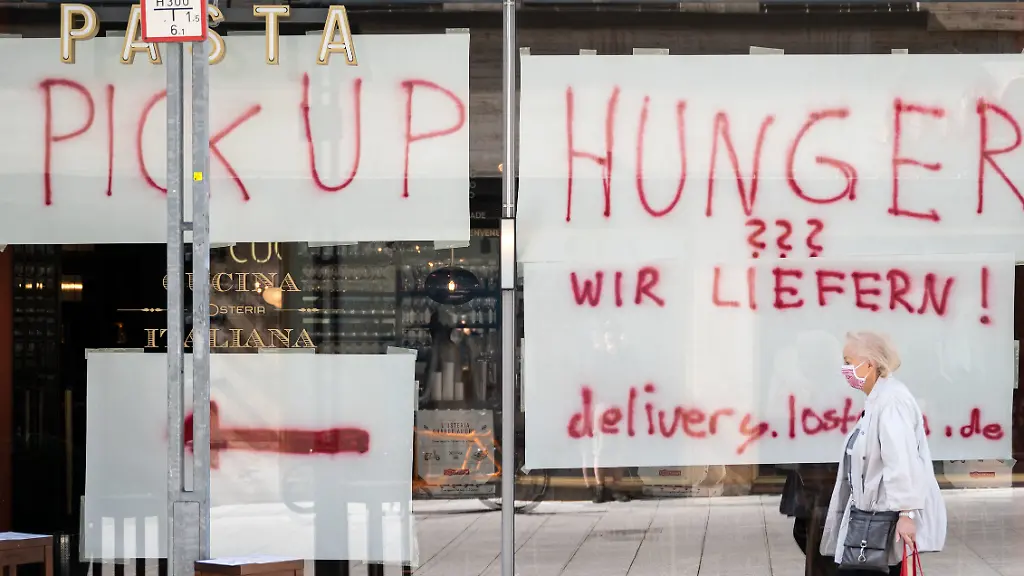 PASTA
H300
1.5
6.1
PICK UP
HUNGER
???
WIR LIEFERN!
CUCINA
OSTERIA
ITALIANA
L'OSTERIA
.de